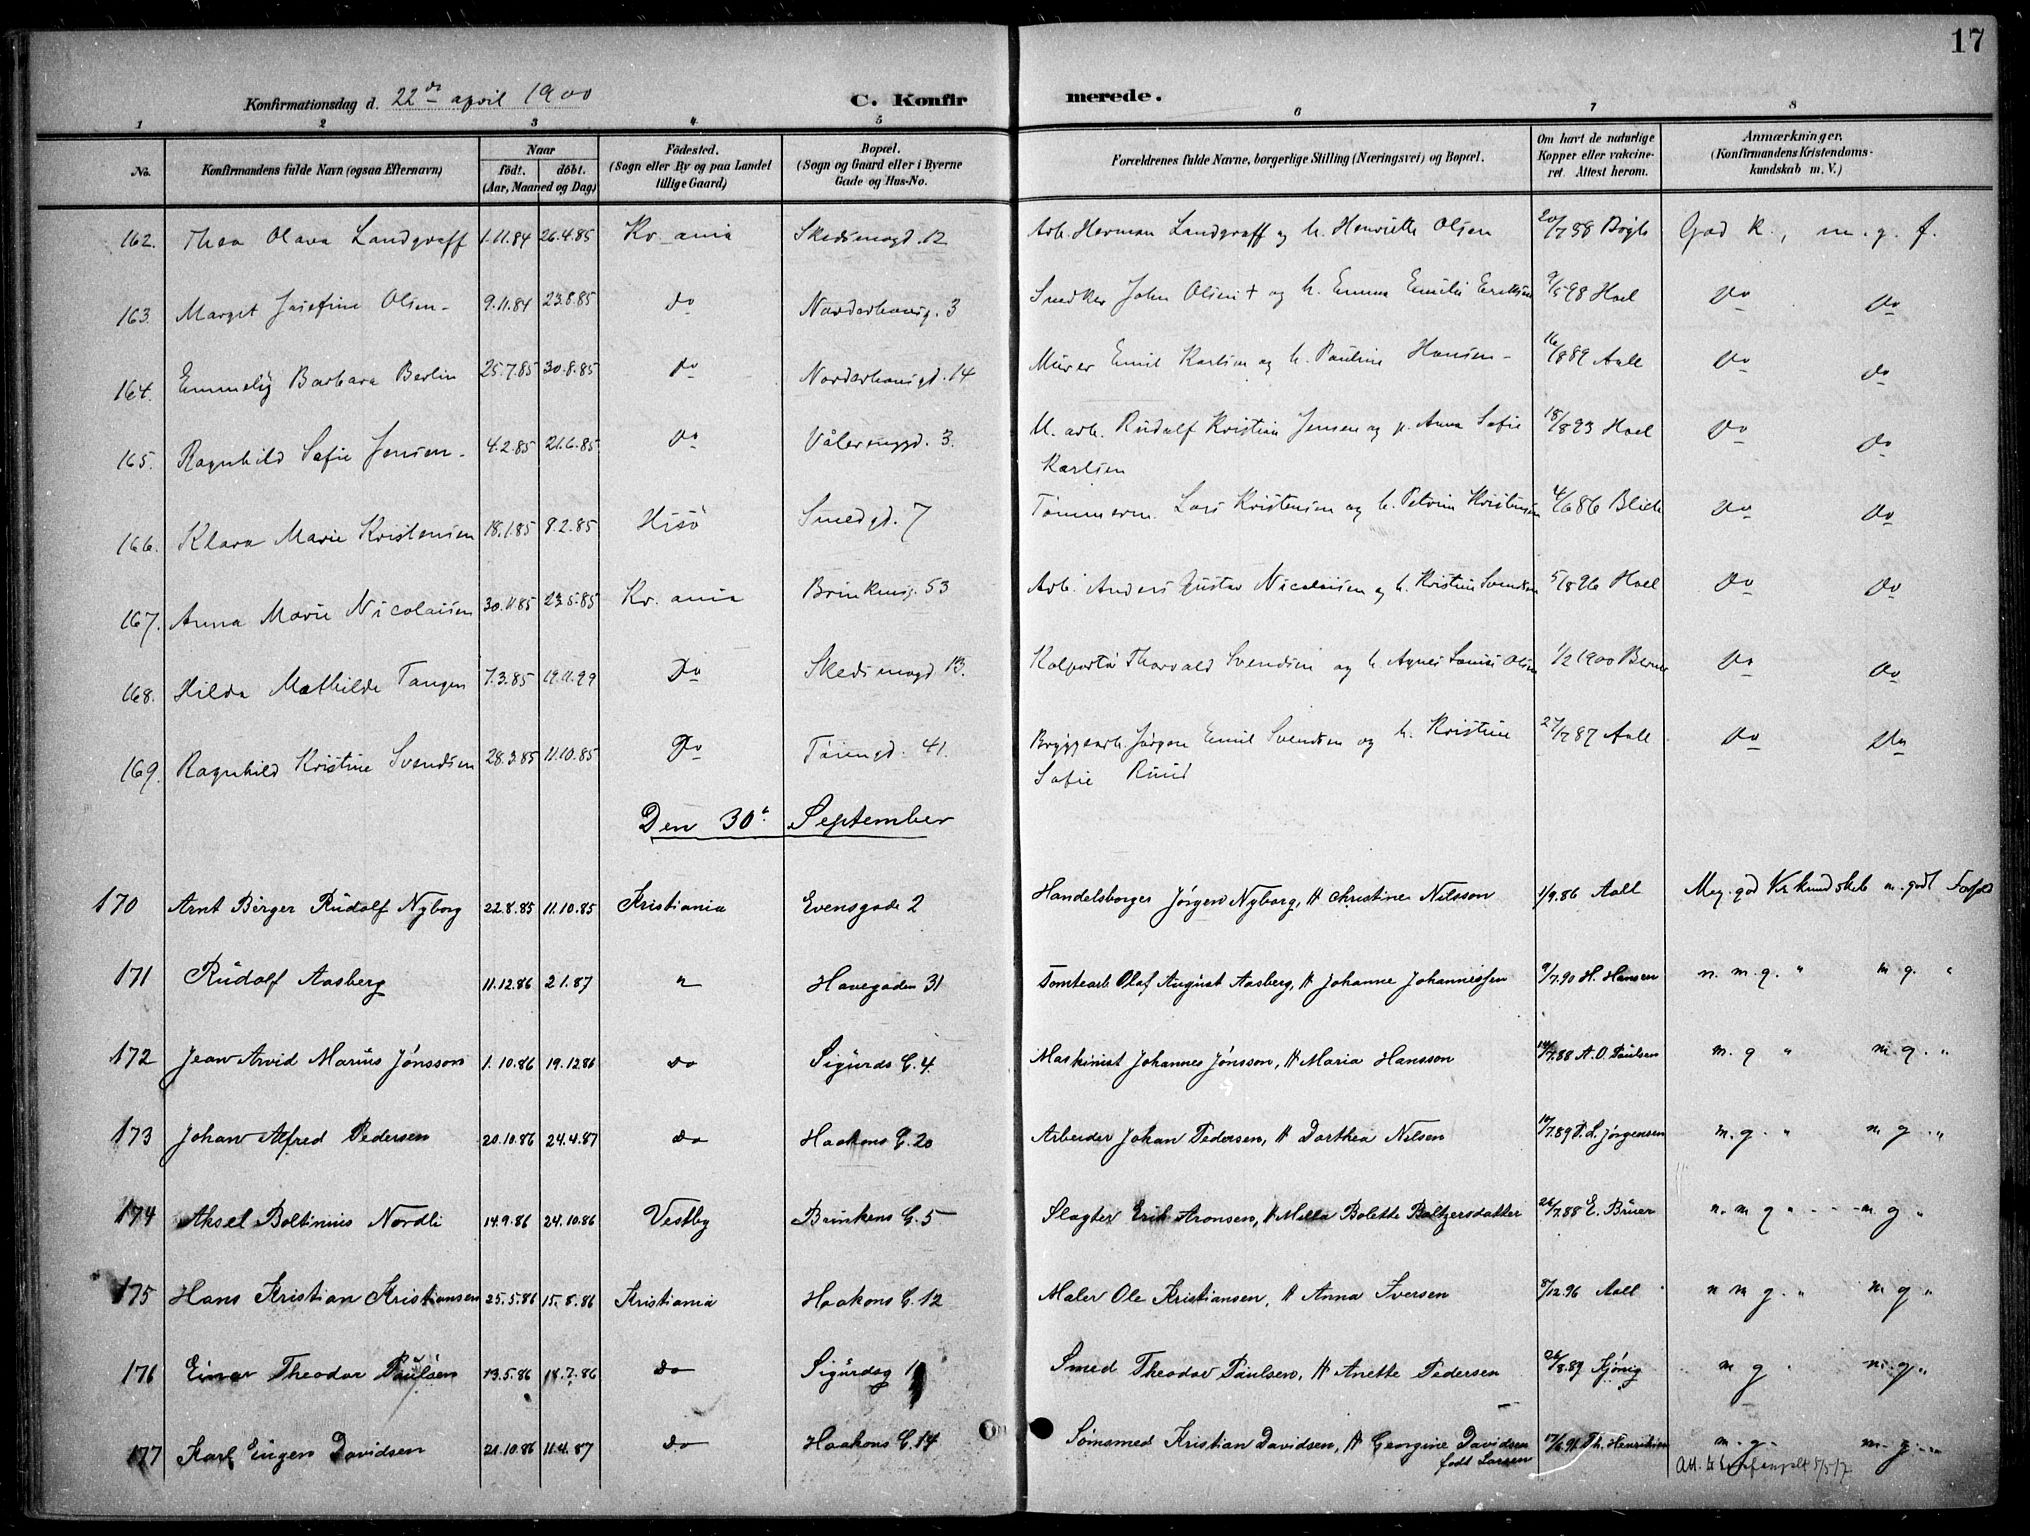 17
Konfirmationsdag d. 22de april 1900
C. Konfirmerede.
1 2 3 4 5 6 7 8
No. Konfirmandens fulde Navn (ogsaa Efternavn) Naar født. døbt. (Aar, Maaned og Dag) Fødested. (Sogn eller By og paa Landet tillige Gaard) Bopæl. (Sogn og Gaard eller i Byerne Gade og Hus-No. Forældrenes fulde Navne, borgerlige Stilling (Næringsvei) og Bopæl. Om havt de naturlige Kopper eller vakcineret. Attest herom. Anmærkninger. (Konfirmandens Kristendomskundskab m. V.)
162. Thea Olava Landgraff 1.11.84 26.4.85 Kr.ania Skedsmogd. 12 Arb. Herman Landgraff og h. Henriette Olsen 20/7 88 God K., m. g. f.
163. Margit Josefine Olsen 9.11.84 23.8.85 do Norderhovsg. 3 Snedker John Olsen + og h. Emma Emilie Eriksen 9/5 98 Hoel do do
164. Emmely Barbara Berlin 25.7.85 30.8.85 do Norderhovsgd. 14 Murer Emil Karlsen og h. Pauline Hansen 16/8 89 Aall do do
165. Ragnhild Sofie Jensen 4.2.85 21.6.85 do Vålerenggd. 3. U. arb. Rudolf Kristian Jensen og p. Anna Sofie 18/8 93 Hoel do do
Karlsen
166. Klara Marie Kristensen 18.1.85 8.2.85 Hisö Smedgd. 7 Tømmerm. Lars Kristensen og h. Petrine Kristensen 4/6 86 Blich do do
167. Anna Marie Nicolaisen 30.11.85 23.5.85 Kr.ania Brinkensg. 53 Arb. Anders Gustav Nicolaisen og h. Kristine Svendsen 5/8 96 Hoel do do
168. Hilda Mathilde Tangen 7.3.85 19.11.99 Do Skedsmogd 13. Kolportør Thorvald Svendsen og h Agnes Louise Olsen 1/2 1900 Berner do do
169. Ragnhild Kristine Svendsen 28.3.85 11.10.85 Do Tøiengd. 41. Bryggearb. Jørgen Emil Svendsen og h. Kristine 27/7 87 Aall do do
Sofie Ruud
Den 30te September
170 Arnt Birger Rudolf Nyborg 22.8.85 11.10.85 Kristiania Evensgade 2 Handelsborger Jørgen Nyborg, H Christine Nilsson 1/9.86 Aall Meg. god Kr. kundskab m. godt Forh.
171 Rudolf Aasberg 11.12.86 2.1.87 " Havegaden 31 Tomtearb Olaf August Aasberg, H Johanne Johannessen 9/7.90 H. Hansen n. m. g. " m g. "
172 Jean Arvid Marius Jónsson 1.10.86 19.12.86 do Sigurds G. 4. Maskinist Johannes Jónsson, H Maria Hansson 14/7.88 A. O. Paulsen m. g " m. g. "
173 Johan Alfred Pedersen 20.10.86 24.4.87 do Haakons G. 20 Arbeider Johan Pedersen, H Dorthea Nilsen 17/7.89 P. L. Jørgensen m. g. " m g "
174 Aksel Boltinius Nordli 14.9.86 24.10.86 Vestby Brinkens G. 5 Slagter Erik Aronsen, H Milla Bolette Baltzersdatter 26/7.88 E. Bruer n. m g " m g "
175 Hans Kristian Kristiansen 25.5.86 15.8.86 Kristiania Haakons G. 12 Maler Ole Kristiansen, H Anna Iversen 8/12.96 Aall n m g. " m g "
176 Einar Theodor Paulsen 13.5.86 18.7.86 do Sigurdsg 1 Smed Theodor Paulsen, H Anette Pedersen 26/8.89 m g m. g "
177 Karl Eugen Davidsen 21.10.86 11.4.87 do Haakons G. 14 Sømsmed Kristian Davidsen, H Georgine Davidsen 17/6.91 Th. Henriksen m. g. m. g. "
født Larsen